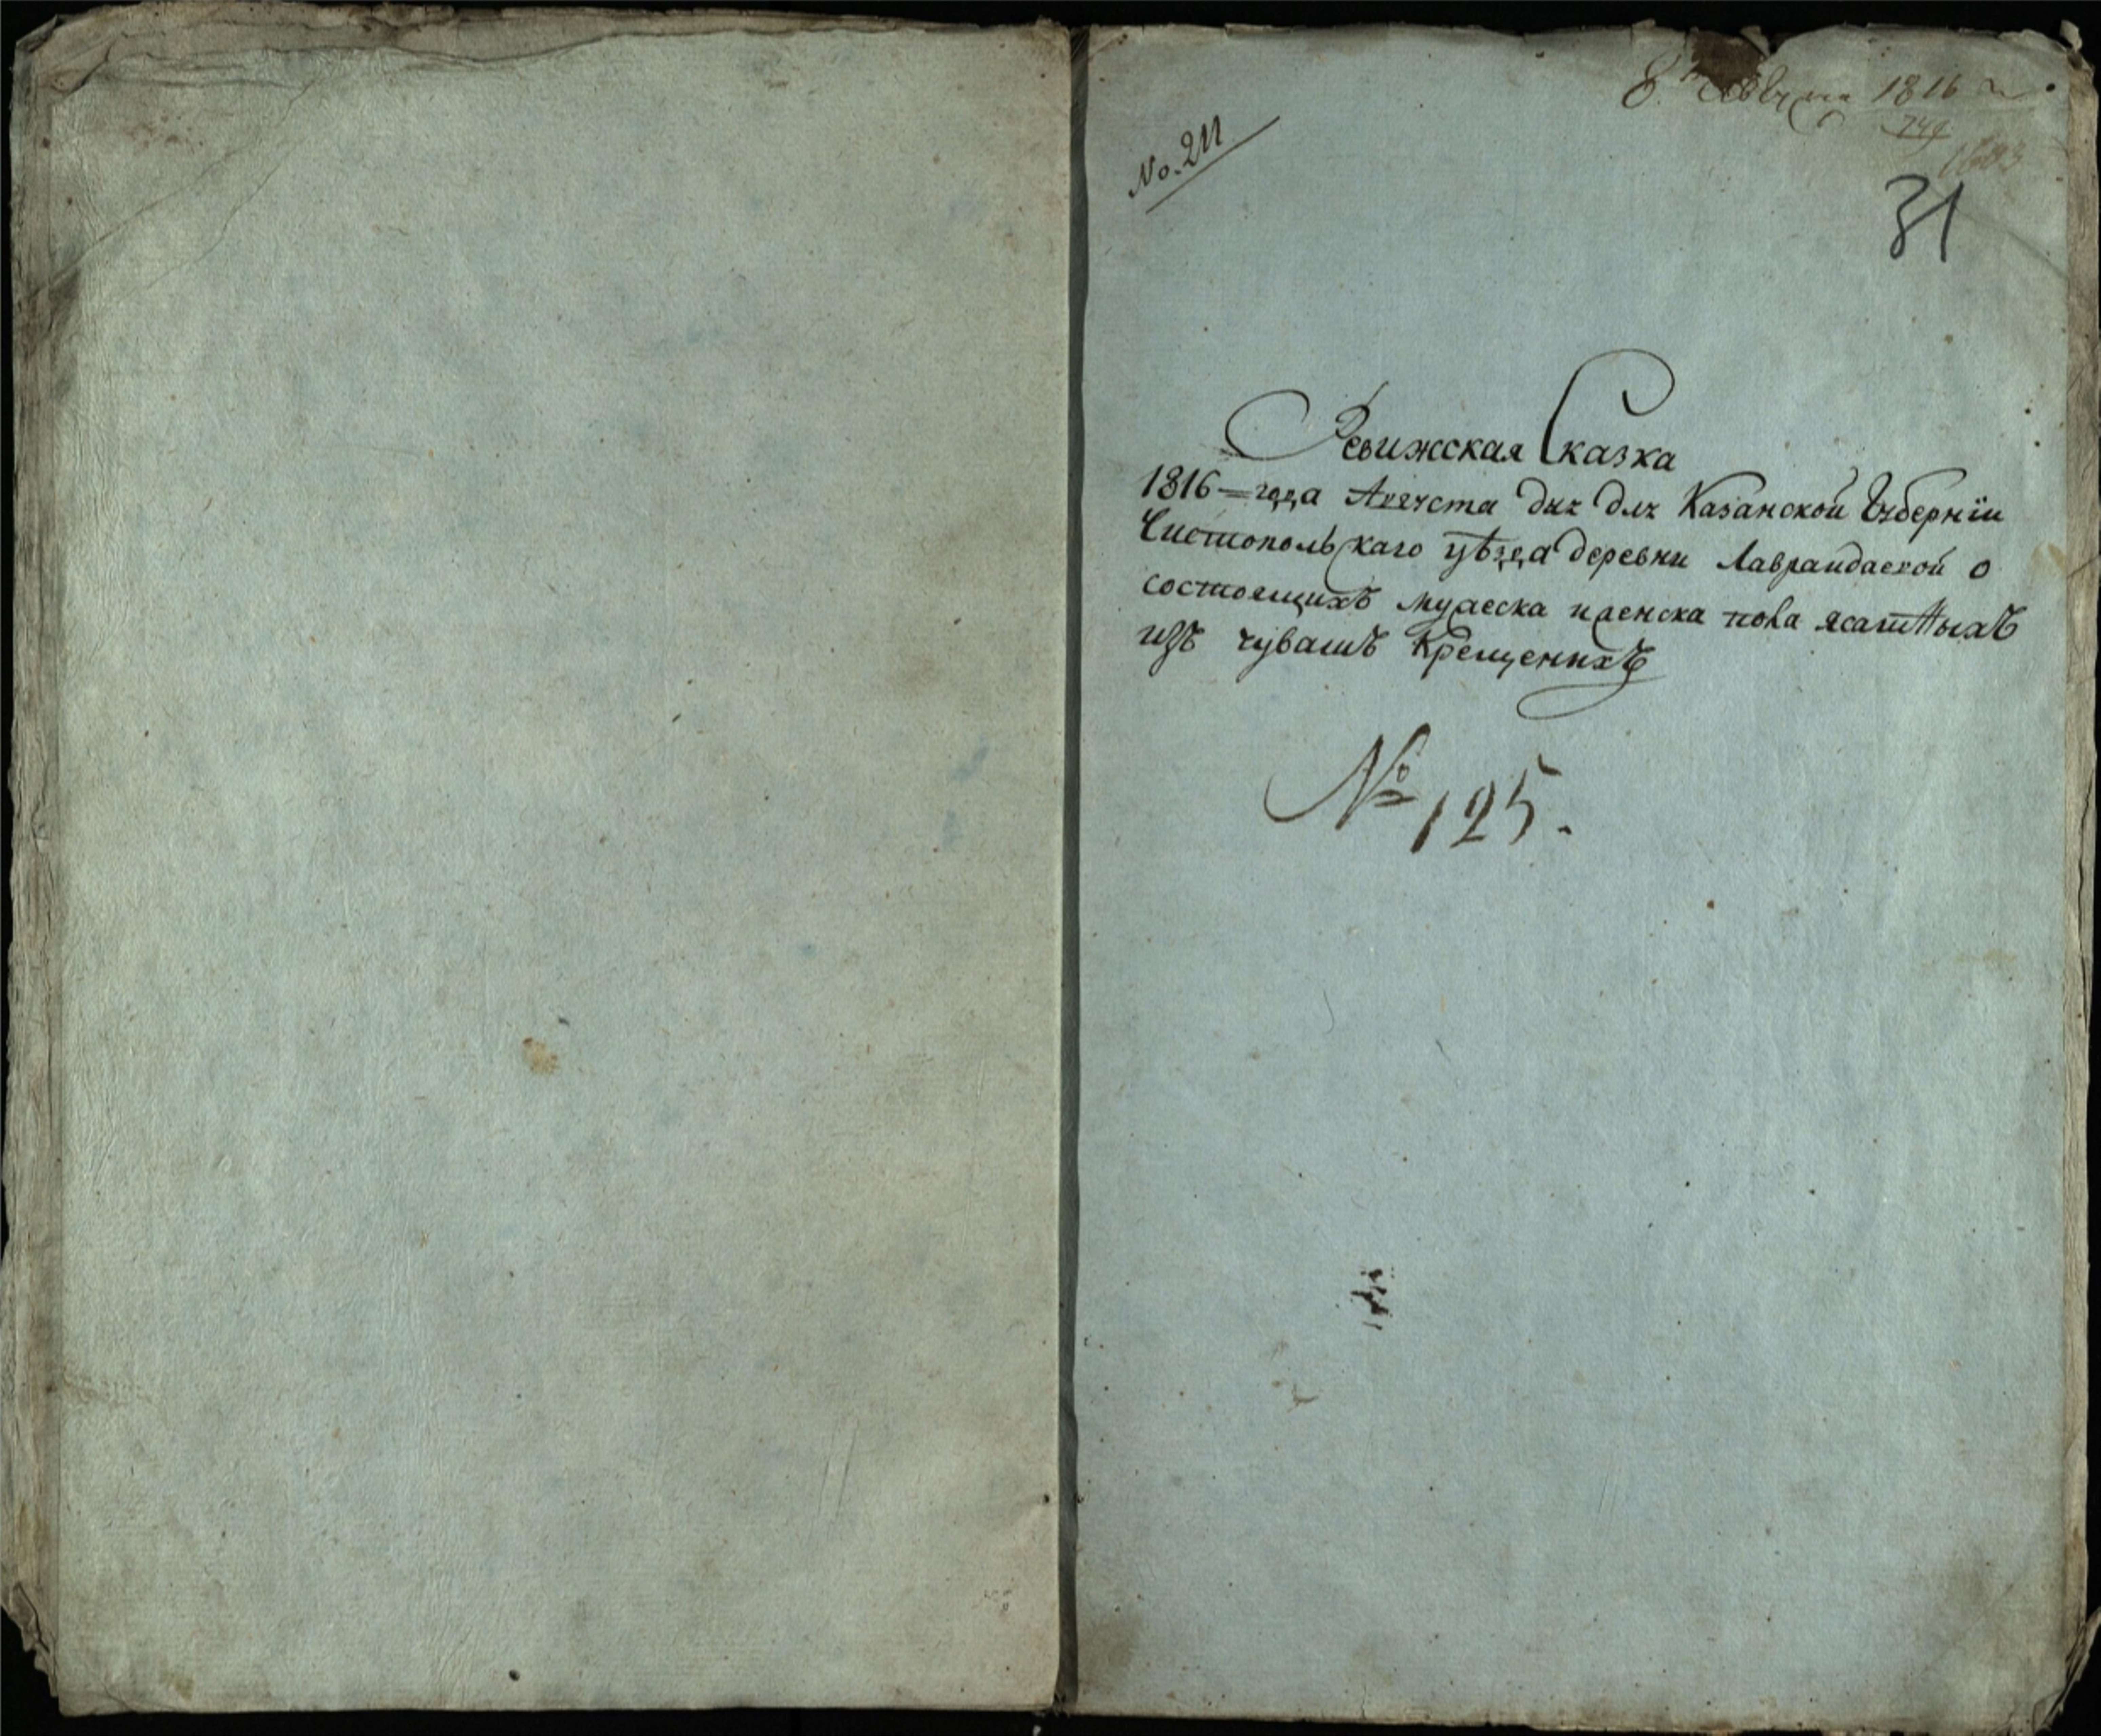 8. Августа 1816
No. 211
31
Ревижская Сказка
1816 = года Августа дня для Казанской Губернїи
Чистопольскаго уѣзда деревни Лавраидаской о
состоящихъ мужеска и женска пола ясашныхъ
изъ чувашъ Крещенихъ
№ 125.